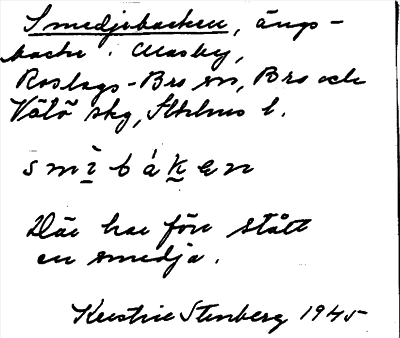 Smedjebacken, ängs-
backe i Massby,
Roslags-Bro sn, Bro och
Vätö skg, Sthlms l.
smìbáken
Där har förr stått
en smedja.
Kerstin Stenberg 1945